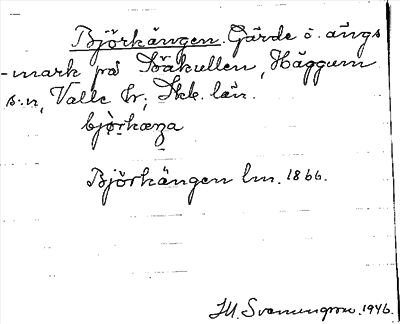 Björkängen. Gärde o. ängs
-mark på Bäkullen, Häggum
s:n, Valle hr; Skb. län.
bjo̱rkæṉa
Björkängen lm. 1866.
M. Svenungson. 1946.